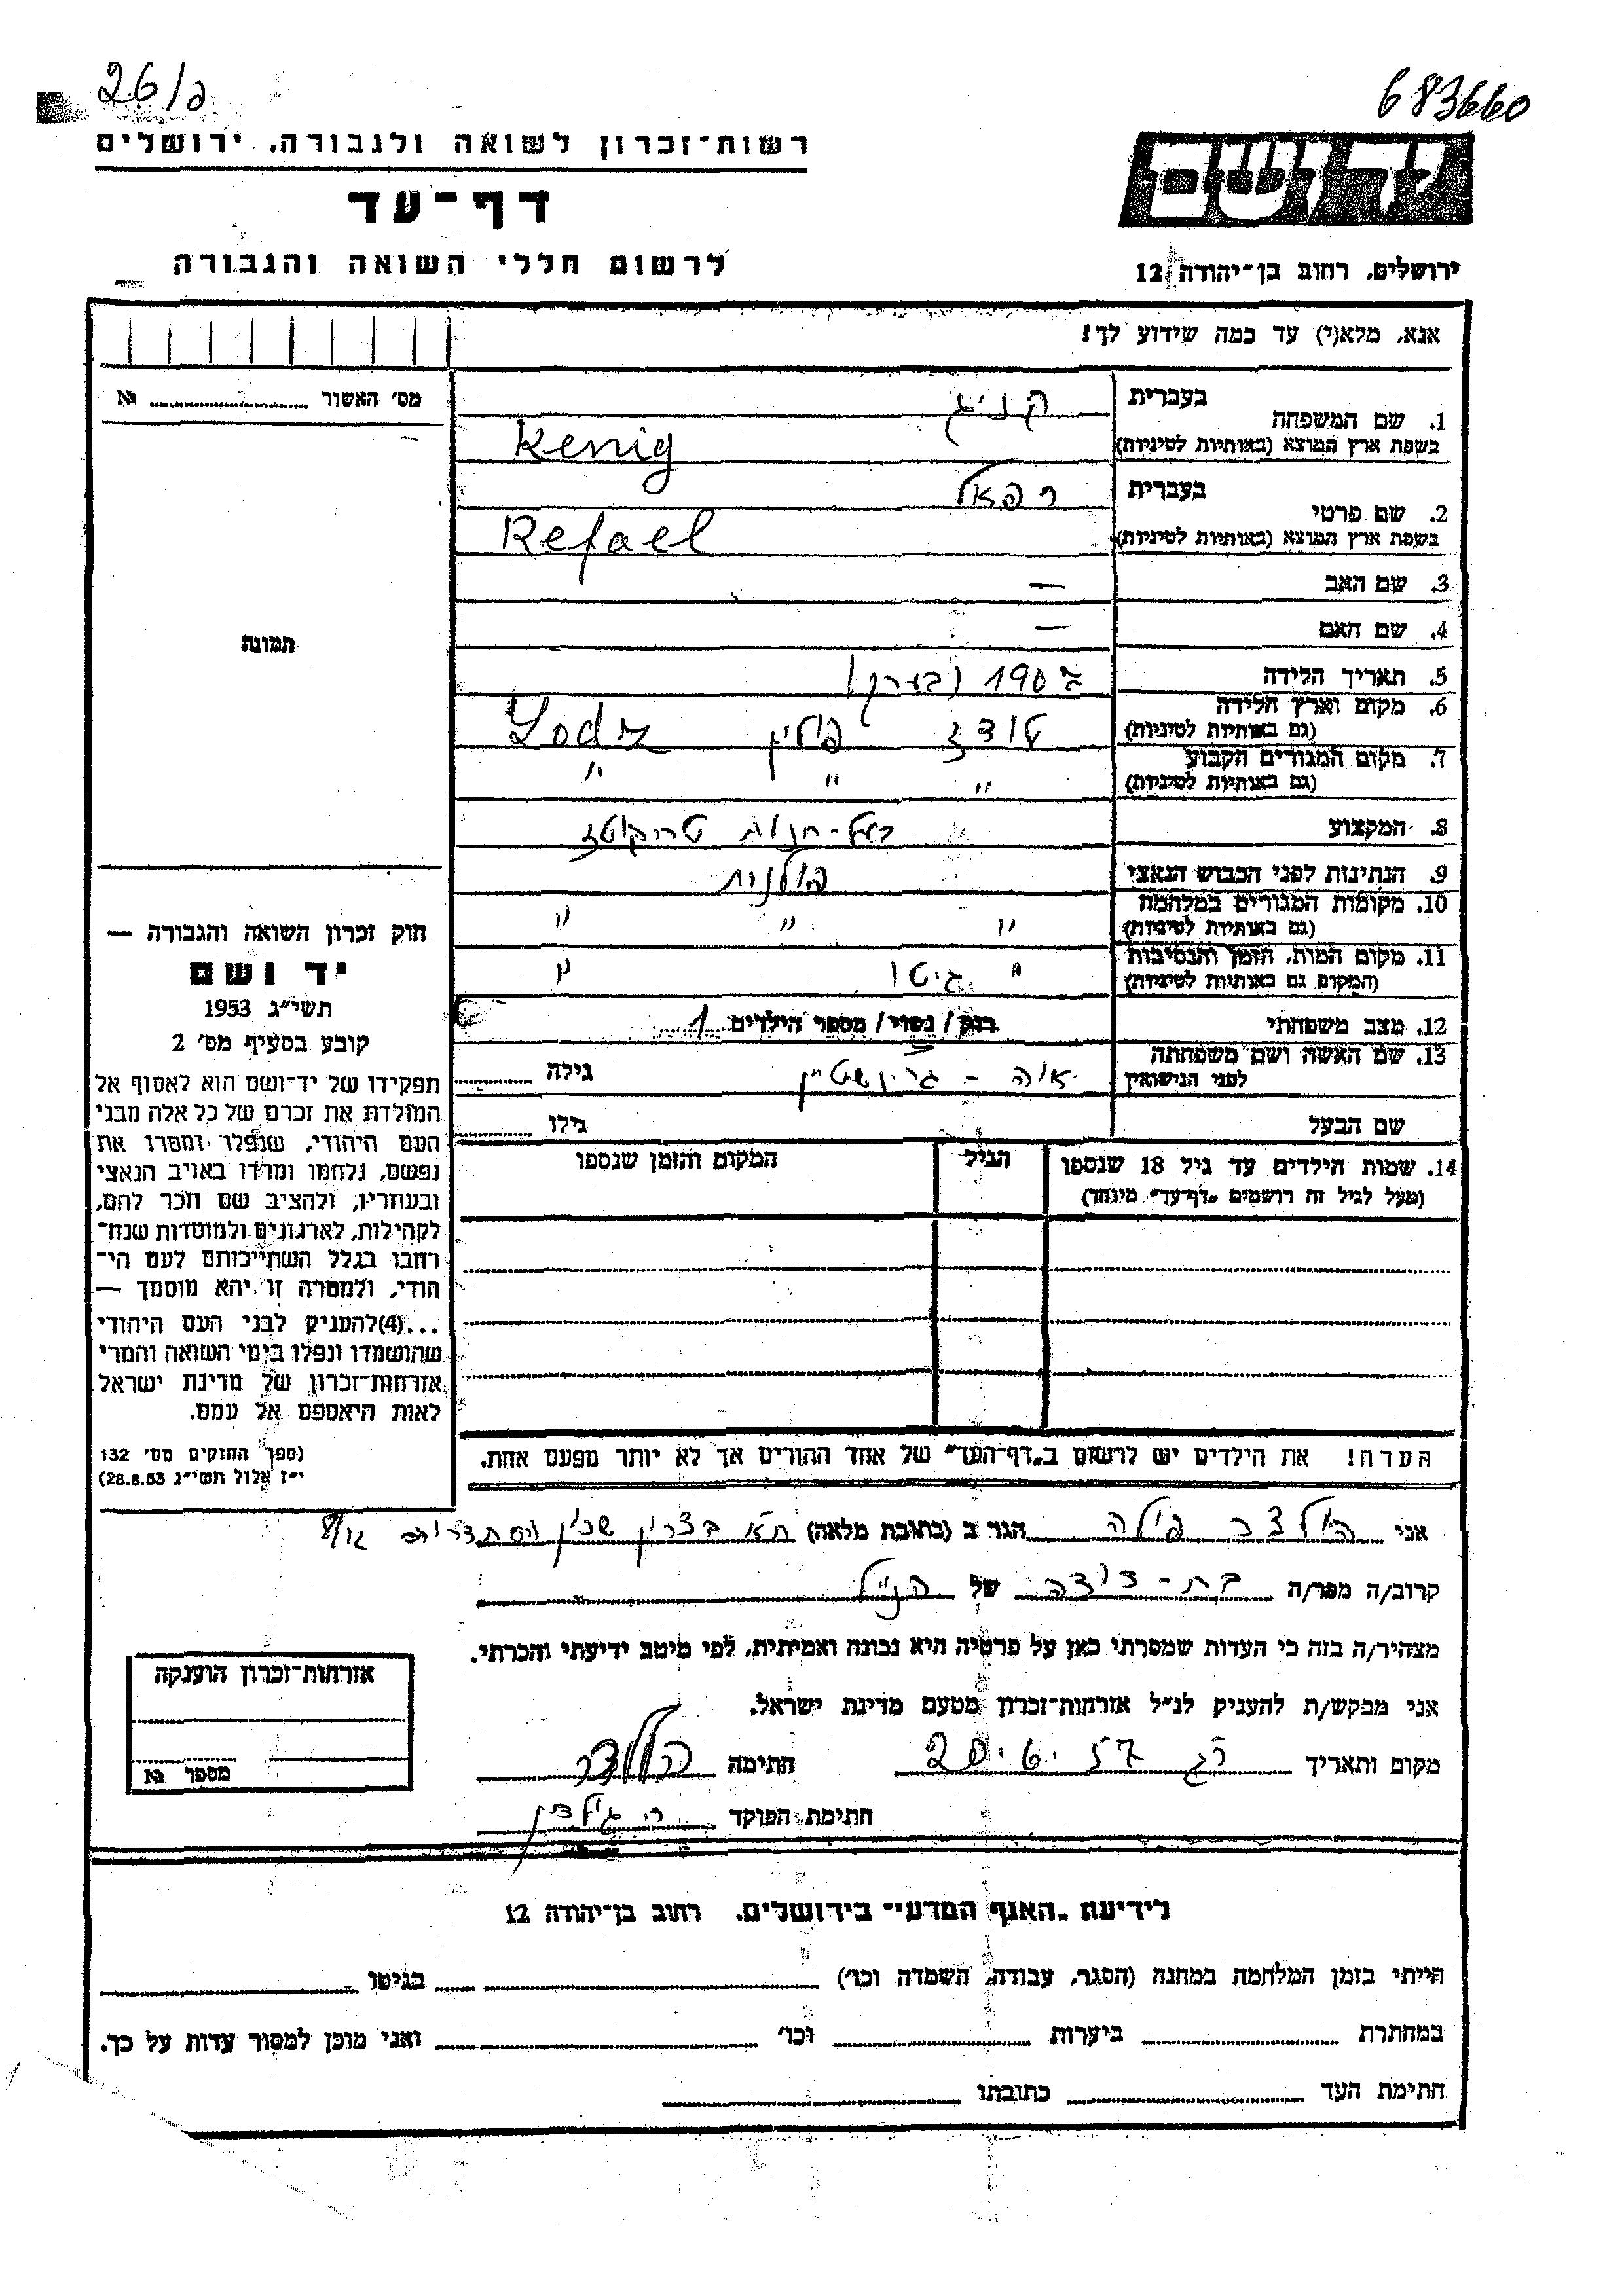 26/ב
683660
רשות־זכרון לשואה ולגבורה. ירושלים
דף־עד
לרשום חללי השואה והגבורה
יד ושם
ירושלים. רחוב בן־יהודה 12
אנא, מלא(י) עד כמה שידוע לך!
מס׳ האשור № 
תמונה
בעברית קניג
1. שם המשפחה
בשפת ארץ המוצא (באותיות לטיניות) Kenig
בעברית רפאל
2. שם פרטי
בשפת ארץ המוצא (באותיות לטיניות) Refael
3. שם האב —
4. שם האם —
5. תאריך הלידה (בערך)
6. מקום וארץ הלידה
(גם באותיות לטיניות) לודז פולין Lodz
7. מקום המגורים הקבוע
(גם באותיות לטיניות) " " "
8. המקצוע בעל-חנות
9. הנתינות לפני הכבוש הנאצי פולנית
10. מקומות המגורים במלחמה
(גם באותיות לטיניות) " " "
11. מקום המות, הזמן והנסיבות
(המקום גם באותיות לטיניות) " גיטו "
12. מצב משפחתי רוק / נשוי / מספר הילדים 1
13. שם האשה ושם משפחתה
לפני הנישואין גרינשטיין גילה
שם הבעל גילו
14. שמות הילדים עד גיל 18 שנספו
(מעל לגיל זה רושמים „דף־עד" מיוחד)
הגיל
המקום והזמן שנספו
הערה! את הילדים יש לרשום ב„דף־העד" של אחד ההורים אך לא יותר מפעם אחת.
חוק זכרון השואה והגבורה —
יד ושם
תשי״ג 1953
קובע בסעיף מס׳ 2
תפקידו של יד־ושם הוא לאסוף אל
המולדת את זכרם של כל אלה מבני
העם היהודי, שנפלו ומסרו את
נפשם, נלחמו ומרדו באויב הנאצי
ובעוזריו, ולהציב שם וזכר להם,
לקהילות, לארגונים ולמוסדות שנח־
רבו בגלל השתייכותם לעם הי־
הודי, ולמטרה זו יהא מוסמך —
...(4)להעניק לבני העם היהודי
שהושמדו ונפלו בימי השואה והמרי
אזרחות־זכרון של מדינת ישראל
לאות היאספם אל עמם.
(ספר החוקים מס׳ 132
י״ז אלול תשי״ג 28.8.53)
אני הולצר הגר ב (כתובת מלאה) ת״א בצרון שכון
קרוב/ה מכר/ה בת-דודה של הנ״ל
מצהיר/ה בזה כי העדות שמסרתי כאן על פרטיה היא נכונה ואמיתית, לפי מיטב ידיעתי והכרתי.
אני מבקש/ת להעניק לנ״ל אזרחות־זכרון מטעם מדינת ישראל.
מקום ותאריך רג 20.6.57 חתימה
חתימת הפוקד
אזרחות־זכרון הוענקה
מספר №
לידיעת „האגף המדעי" בירושלים. רחוב בן־יהודה 12
הייתי בזמן המלחמה במחנה (הסגר, עבודה, השמדה וכו׳) בגיטו
במחתרת ביערות וכו׳ ואני מוכן למסור עדות על כך.
חתימת העד כתובתו